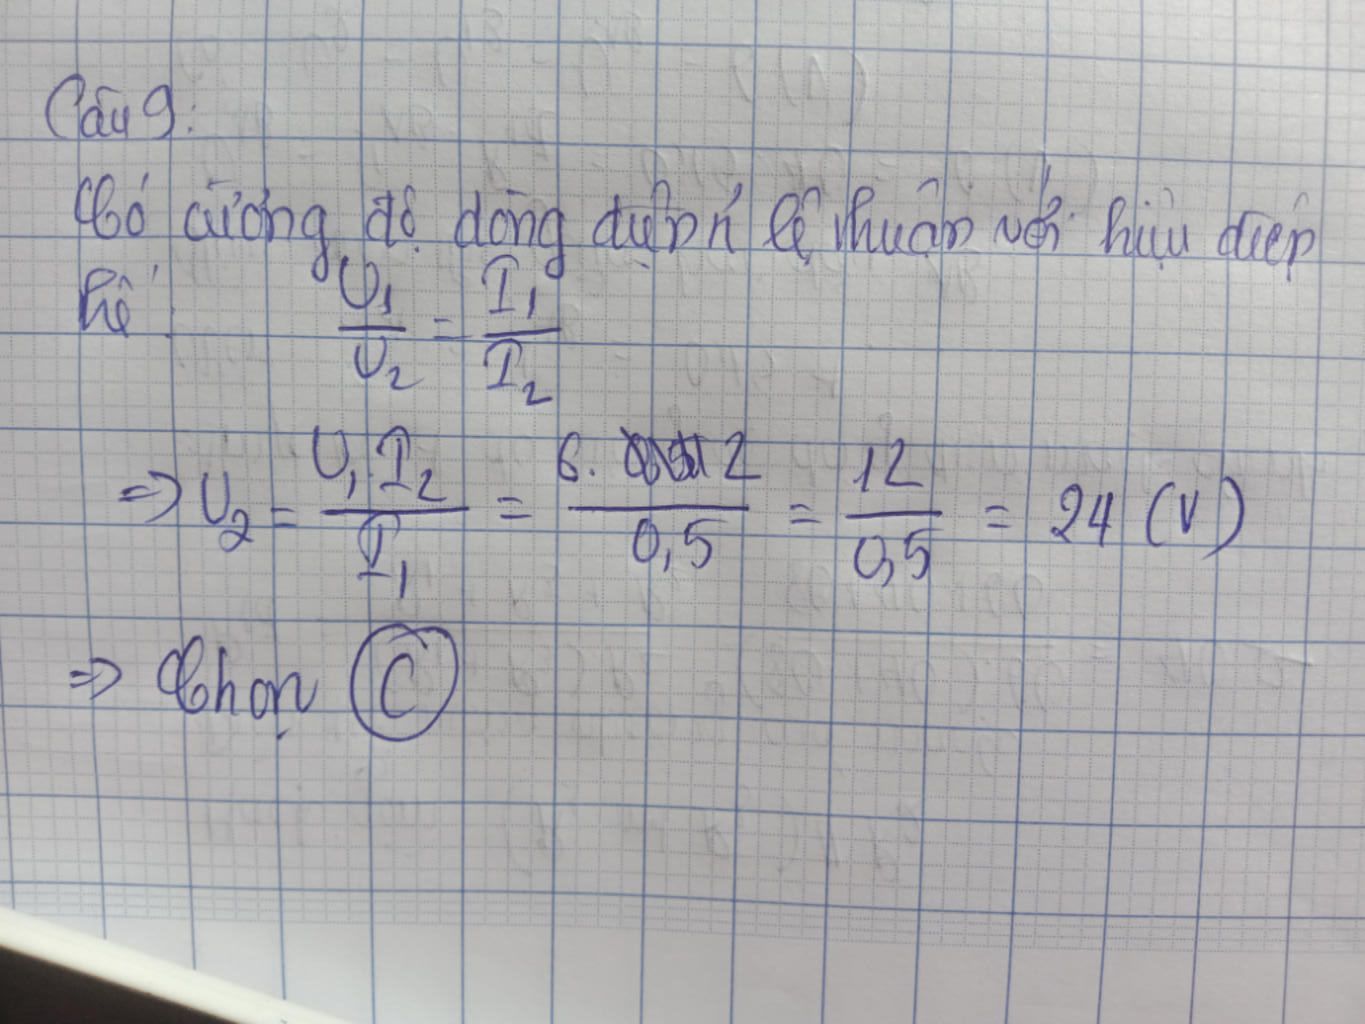 Câu 9:
Có cường độ dòng điện tỉ lệ thuận với hiệu điện
thế:
U₁/U₂ = I₁/I₂
=> U₂ = U₁I₂/I₁ = 6.2/0,5 = 12/0,5 = 24 (V)
=> Chọn C